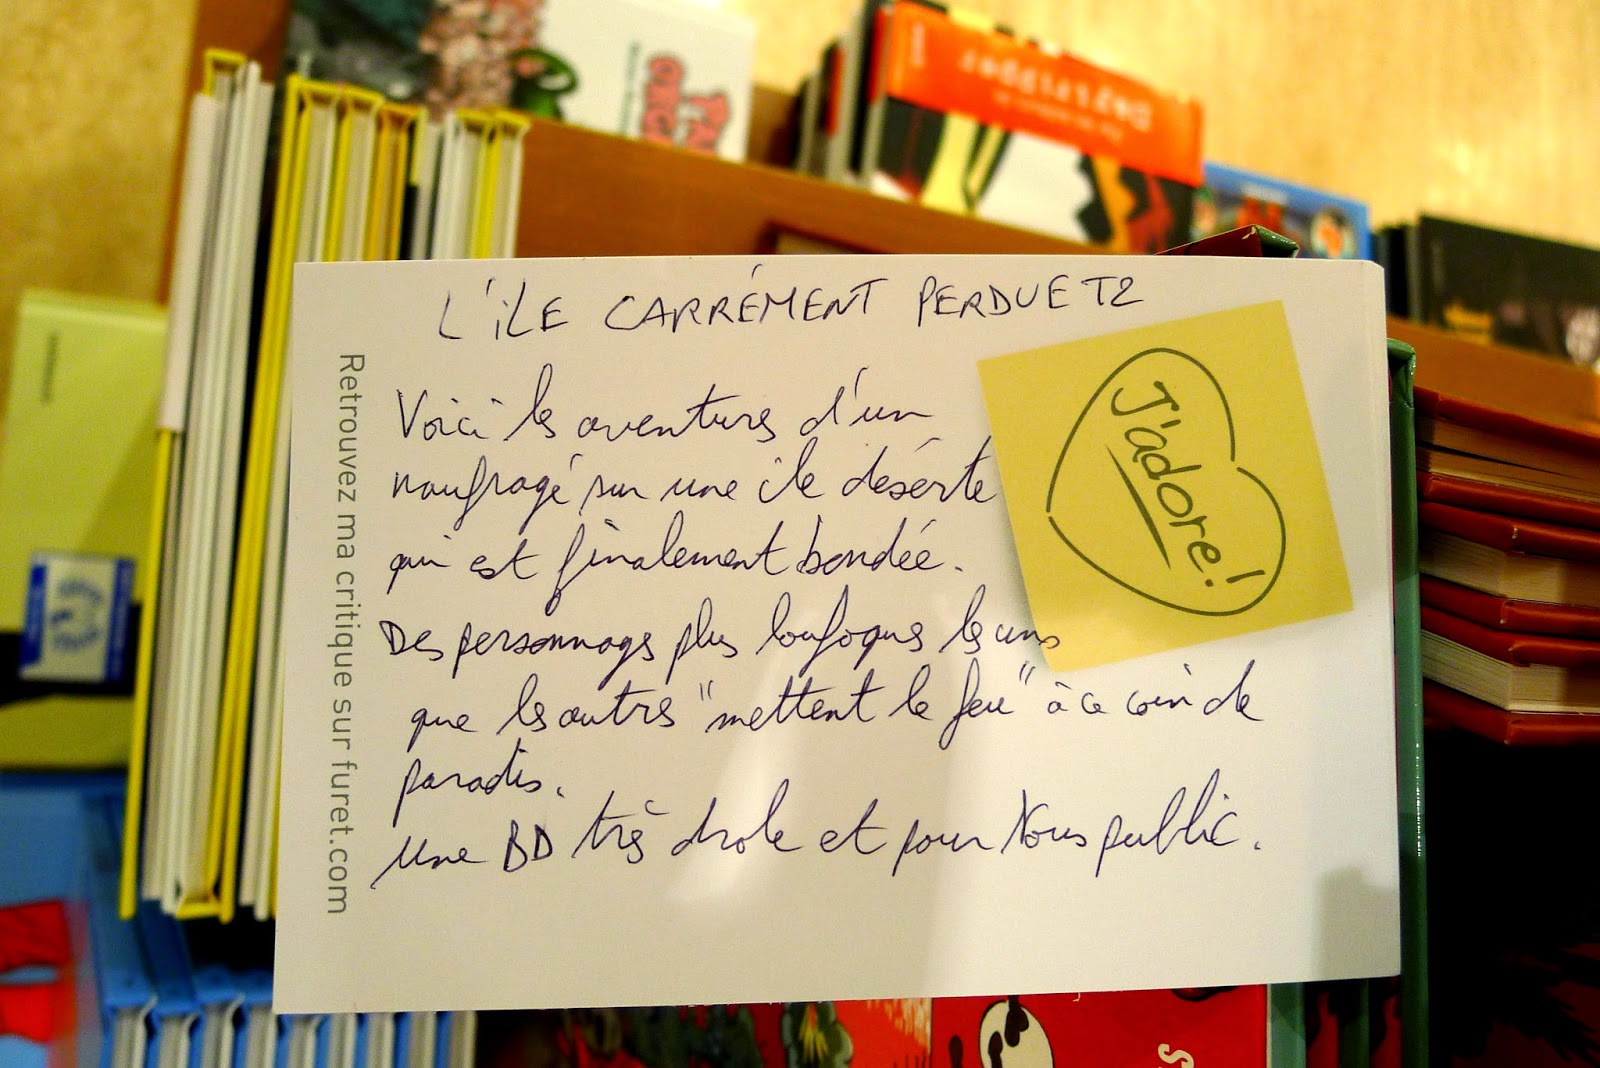 L'ÎLE CARRÉMENT PERDUE T2
Voici les aventures d'un
naufragé sur une île désérte
qui est finalement bondée.
Des personnages plus loufoques les uns
que les autres "mettent le feu" à ce coin de
paradis.
Une BD très drole et pour tous public.
J'adore!
Retrouvez ma critique sur furet.com